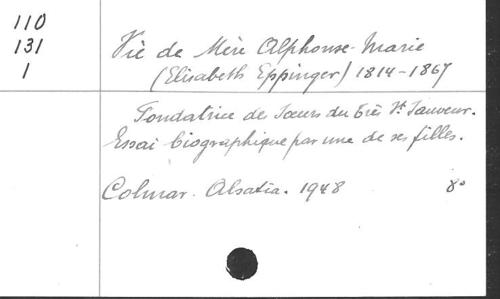 110
131
1
Vie de Mère Alphonse-Marie
(Elisabeth Eppinger) 1814-1867
Fondatrice de Sœurs du très St Sauveur.
Essai biographique par une de ses filles.
Colmar. Alsatia. 1948 8°